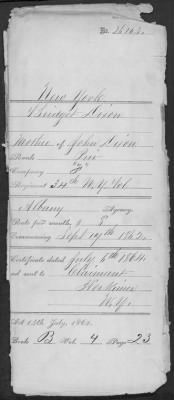 No.
New York
Bridget Dixon
Mother of John Dixon
Rank Pvt
Company "F"
Regiment 34th N.Y. Vol
Albany Agency.
Rate per month, $ 8
Commencing Sept 17th 1862.
Certificate dated July 6th 1864
and sent to Claimant
Herkimer
N.Y.
Act 14th July, 1862.
Book B Vol. 4 Page 23